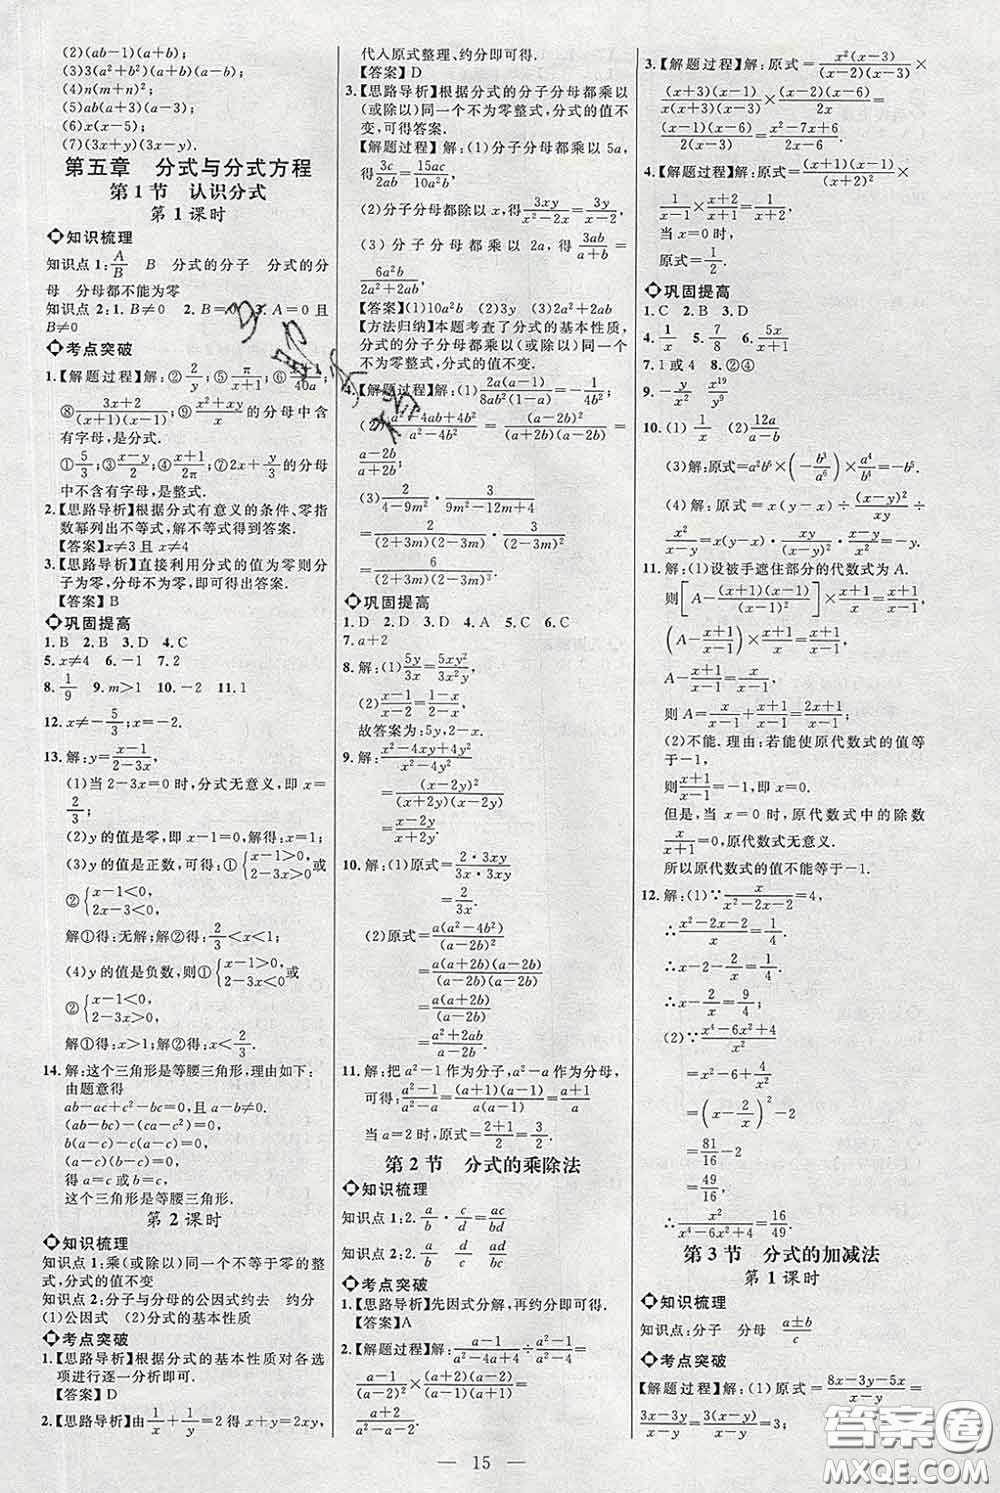 (2)(ab-1)(a+b);
(3)3(a²+b²)(a+b)(a-b);
(4)n(m+n)²;
(5)ab(a+3)(a-3);
(6)x(x-5);
(7)(3x+y)(3x-y).
第五章 分式与分式方程
第1节 认识分式
第1课时
知识梳理
知识点1:A/B B 分式的分子 分式的分
母 分母都不能为零
知识点2:1.B≠0 2.B=0 3.A=0且
B≠0
考点突破
1.【解题过程】解:②2/y;⑤π/(x+1);⑥
⑧(3x+2)/((x+1)(x-1));⑨(x²+xy)/x的分母中含
有字母,是分式.
①5/3;③(x-y)/2;④(x+1)/2π;⑦2x+y/3的分母
中不含有字母,是整式.
2.【思路导析】根据分式有意义的条件、零指
数幂列出不等式,解不等式得到答案.
【答案】x≠3且x≠4
3.【思路导析】直接利用分式的值为零则分
子为零,分母不为零,即可得出答案.
【答案】B
巩固提高
1.B 2.B 3.D 4.C
5.x≠4 6.-1 7.2
8.1/9 9.m>1 10.-2 11.1
12.x≠-5/3;x=-2.
13.解:y=(x-1)/(2-3x),
(1)当2-3x=0时,分式无意义,即x=
2/3;
(2)y的值是零,即x-1=0,解得:x=1;
(3)y的值是正数,可得:①{x-1>0, 2-3x>0,或
②{x-1<0, 2-3x<0,
解①得:无解;解②得:2/3<x<1;
(4)y的值是负数,则①{x-1>0, 2-3x<0,或
②{x-1<0, 2-3x>0,
解①得:x>1;解②得:x<2/3.
14.解:这个三角形是等腰三角形,理由如下:
由题意得
ab-ac+c²-bc=0,且a-b≠0.
(ab-bc)-(ca-c²)=0,
b(a-c)-c(a-c)=0,
(a-c)(b-c)=0,
a=c或b=c,
这个三角形是等腰三角形.
第2课时
知识梳理
知识点1:乘(或除以)同一个不等于零的整
式,分式的值不变
知识点2:分子与分母的公因式约去 约分
(1)公因式 (2)分式的基本性质
考点突破
1.【思路导析】根据分式的基本性质对各选
项进行逐一分析即可.
【答案】D
2.【思路导析】由1/x+1/y=2得x+y=2xy,
代入原式整理、约分即可得.
【答案】D
3.【思路导析】根据分式的分子分母都乘以
(或除以)同一个不为零整式,分式的值不
变,可得答案.
【解题过程】解:(1)分子分母都乘以5a,
得3c/2ab=15ac/10a²b;
(2)分子分母都除以x,得3xy/(x²-2x)=3y/(x-2),
(3)分子分母都乘以2a,得3ab/(a+b)=
6a²b/(2a²+2ab)
【答案】(1)10a²b (2)3y (3)2a²+2ab
【方法归纳】本题考查了分式的基本性质,
分式的分子分母都乘以(或除以)同一个
不为零整式,分式的值不变.
4.【解题过程】解:(1)2a(a-1)/8ab²(1-a)=-1/4b²,
(2)(a²-4ab+4b²)/(a²-4b²)=(a-2b)²/((a+2b)(a-2b))=
(a-2b)/(a+2b).
(3)2/(4-9m²)·3/(9m²-12m+4)
=2/((2+3m)(2-3m))·3/(2-3m)²
=6/((2+3m)(2-3m)³)
巩固提高
1.D 2.D 3.D 4.A 5.C 6.C
7.a+2
8.解:(1)5y/3x=5xy²/3x²y,
(2)(x-1)/(x-2)=(1-x)/(2-x),
故答案为:5y,2-x.
9.解:(x²-4xy+4y²)/(x²-4y²)
=(x-2y)²/((x+2y)(x-2y))
=(x-2y)/(x+2y).
10.解:(1)原式=2·3xy/3x·3xy
=2/3x.
(2)原式=a(a²-4b²)/(a-2b)²
=a(a+2b)(a-2b)/((a-2b)(a-2b))
=a(a+2b)/(a-2b)
=(a²+2ab)/(a-2b).
11.解:把a²-1作为分子,a²-a作为分母,
可得:(a²-1)/(a²-a)=(a+1)(a-1)/a(a-1)=(a+1)/a
当a=2时,原式=(2+1)/2=3/2.
第2节 分式的乘除法
知识梳理
知识点1:2.a/b·c/d=ac/bd
知识点2:2.a/b c/d ad/bc
考点突破
1.【思路导析】先因式分解,再约分即可得.
【答案】A
2.【解题过程】解:(a-1)/(a²-4a+4)÷(a²-1)/(a²-4)=
(a-1)/(a-2)²×(a+2)(a-2)/((a+1)(a-1))=
(a+2)/
3.【解题过程】解:原式=x²(x-3)/((x-2)(x-3))×
(x+3)(x-3)/x(x+3)×(x-2)(x-6)/2x=
(x-1)(x-6)/2=(x²-7x+6)/2.
4.【解题过程】解:原式=(x+1)(x-1)/(x+2)²÷
1/(x-1)×(x+2)/(x+1)=1/(x+2).
当x=0时,
原式=1/2.
巩固提高
1.C 2.B 3.D
4.1/x 5.7/8 6.5x/(x+1)
7.1或4 8.②④
9.-y/x² x¹⁹/y⁹
10.(1)1/x (2)12a/(a-b)
(3)解:原式=a²b⁶×(-b³/a⁶)×a⁴/b⁴=-b⁵.
(4)解:原式=x(y-x)÷(x-y)²/xy÷
x²/(x-y)=x(y-x)·xy/(x-y)²·(x-y)/x²=-y.
11.解:(1)设被手遮住部分的代数式为A.
则[A-(x+1)(x-1)/(x-1)²]×(x-1)/(x+1)=x/(x+1),
(A-(x+1)/(x-1))×(x-1)/(x+1)=x/(x+1),
A-(x+1)/(x-1)=x/(x-1),
则A=x/(x-1)+(x+1)/(x-1)=(2x+1)/(x-1).
(2)不能.理由:若能使原代数式的值等
于-1,
则(x+1)/(x-1)=-1,即x=0.
但是,当x=0时,原代数式中的除数
x/(x+1)=0,原代数式无意义.
所以原代数式的值不能等于-1.
12.解:(1)∵x/(x²-2x-2)=4,
∴(x²-2x-2)/x=1/4.
∴x-2-2/x=1/4.
∴x-2/x=9/4;
(2)∵(x⁴-6x²+4)/x²
=x²-6+4/x²
=(x-2/x)²-2
=81/16-2
=49/16.
∴x²/(x⁴-6x²+4)=16/49.
第3节 分式的加减法
第1课时
知识梳理
知识点:分子 分母 (a±b)/c
考点突破
【解题过程】解:(1)原式=(8x-3y-5x)/(x-y)=
(3x-3y)/(x-y)=3(x-y)/(x-y)=3;
15
答案圈
MXQE.COM